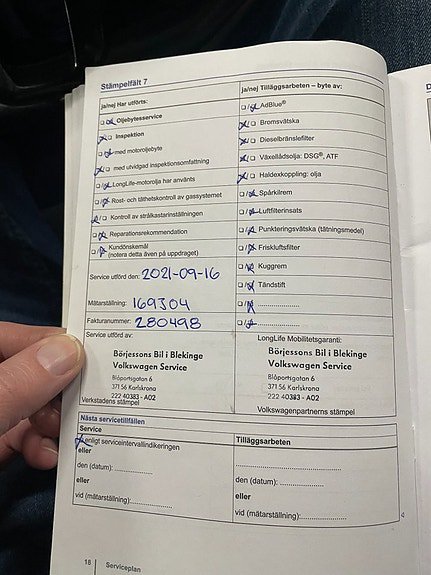 Stämpelfält 7
ja/nej Har utförts:
Oljebytesservice
Inspektion
med motoroljebyte
med utvidgad inspektionsomfattning
LongLife-motorolja har använts
Rost- och täthetskontroll av gassystemet
Kontroll av strålkastarinställningen
Reparationsrekommendation
Kundönskemål
(notera detta även på uppdraget)
Service utförd den: 2021-09-16
Mätarställning: 169304
Fakturanummer: 280498
Service utförd av:
Börjessons Bil i Blekinge
Volkswagen Service
Blåportsgatan 6
371 56 Karlskrona
222 40383 - A02
Verkstadens stämpel
ja/nej Tilläggsarbeten – byte av:
AdBlue®
Bromsvätska
Dieselbränslefilter
Växellådsolja: DSG®, ATF
Haldexkoppling: olja
Spårkilrem
Luftfilterinsats
Punkteringsvätska (tätningsmedel)
Friskluftsfilter
Kuggrem
Tändstift
LongLife Mobilitetsgaranti:
Börjessons Bil i Blekinge
Volkswagen Service
Blåportsgatan 6
371 56 Karlskrona
222 40383 - A02
Volkswagenpartnerns stämpel
Nästa servicetillfällen
Service
enligt serviceintervallindikeringen
eller
den (datum):
eller
vid (mätarställning):
Tilläggsarbeten
den (datum):
eller
vid (mätarställning):
18 | Serviceplan